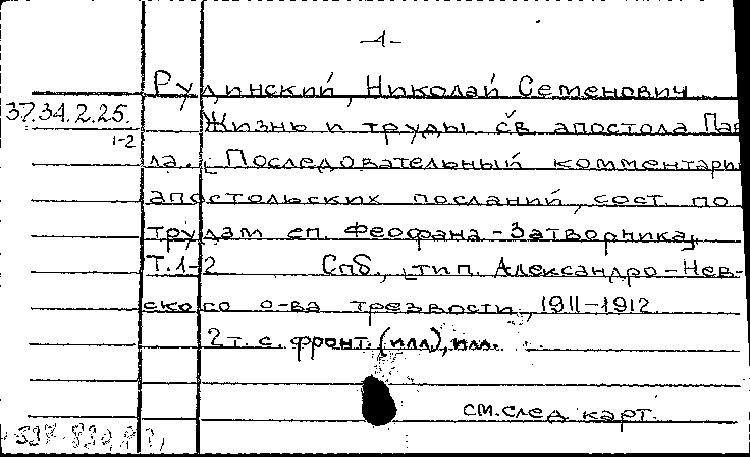 -1-
Рудинский, Николай Семенович
37.34.2.25.
1-2
Жизнь и труды св. апостола Пав
ла. [Последовательный комментари
апостольских посланий, сост. по
трудам еп. Феофана-Затворника].
Т.1-2 Спб., [тип. Александро-Нев-
ского о-ва трезвости, 1911-1912
2 т. с. фронт. (илл.), илл.
см. след карт.